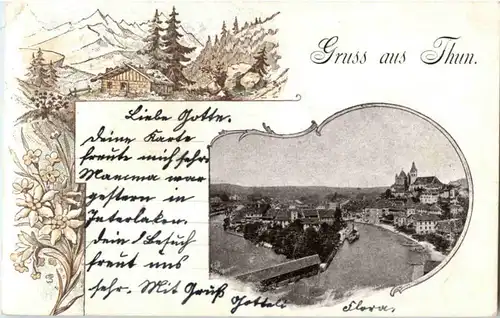 Gruss aus Thun.
Liebe Gotte.
Deine Karte
freute mich sehr.
Mamma war
gestern in
Interlaken.
Dein l Besuch
freut uns
sehr. Mit Gruß
Flora.